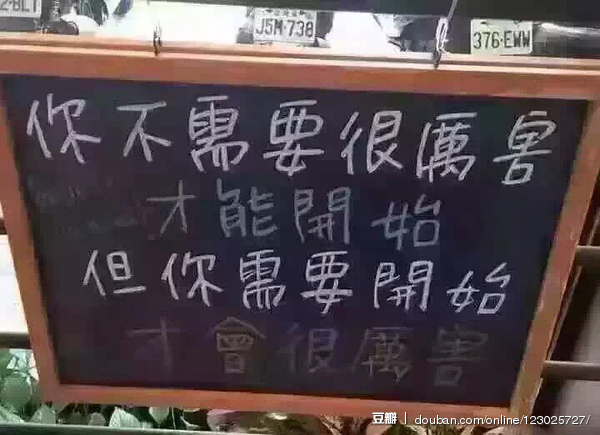 2·BLT
J5M·738
376·EWW
你不需要很厲害
才能開始
但你需要開始
才會很厲害
豆瓣 | douban.com/online/123025727/